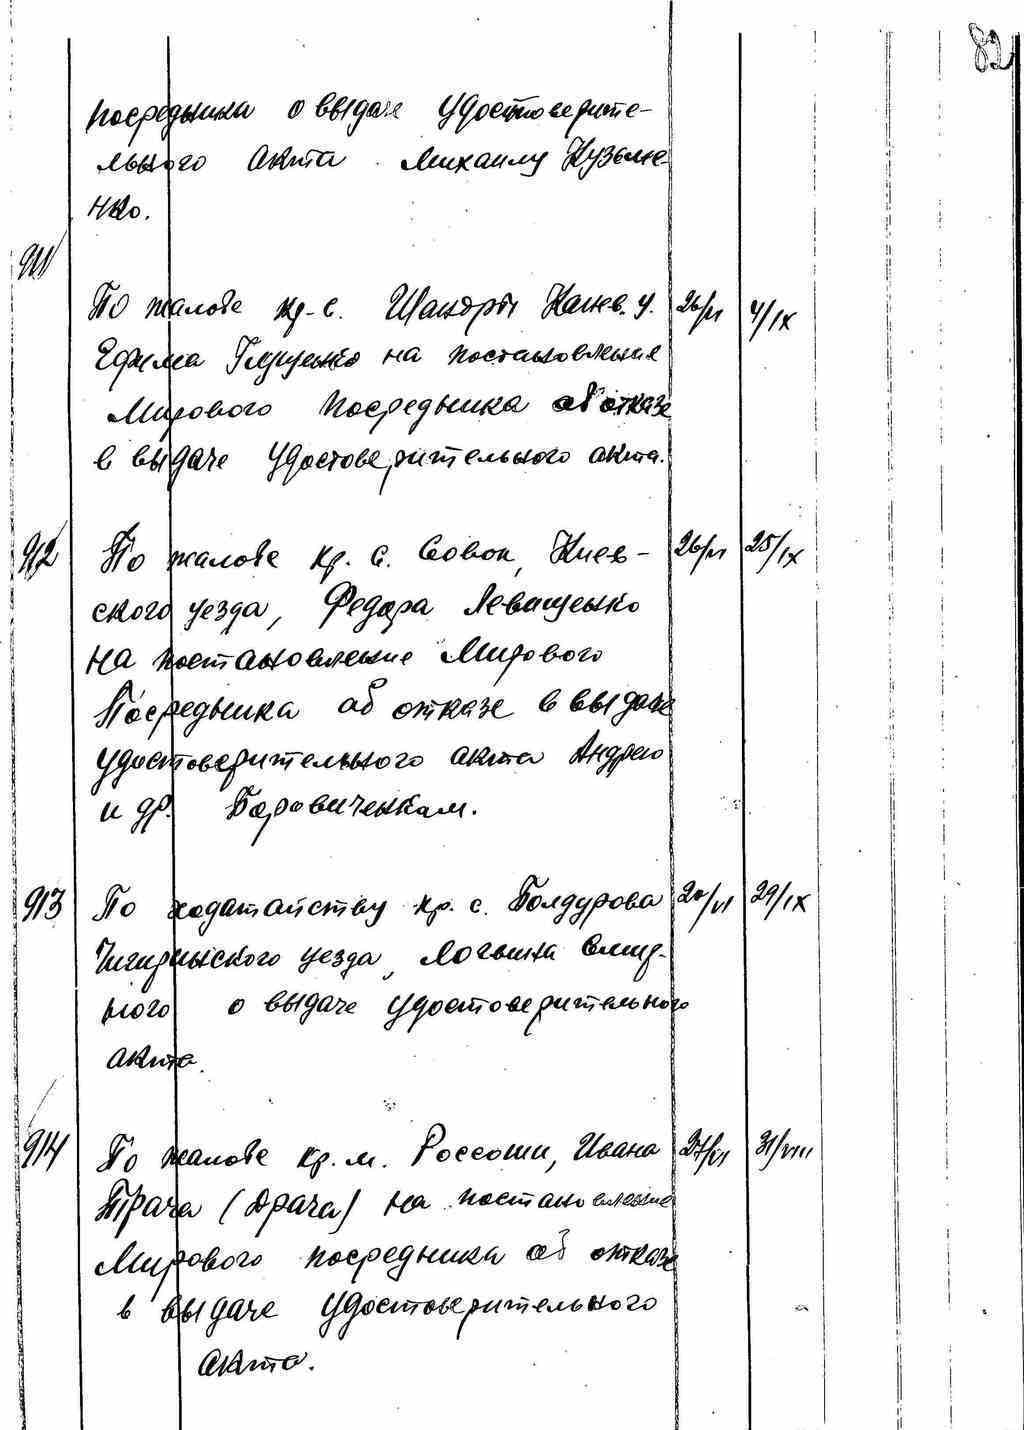 82
посредника о выдаче удостоверите-
льного акта Михаилу Кузьме-
нко.
911
По жалобе кр-с. Шандры Канев. у. 26/VI 4/IX
Ефима Глущенко на постановление
Мирового Посредника об отказе
в выдаче удостоверительного акта.
912 По жалобе кр. с. Совок, Киев- 26/VI 25/IX
ского уезда, Федора Левищенко
на постановление Мирового
Посредника об отказе в выдаче
удостоверительного акта Андрею
и др. Боровиченкам.
913 По ходатайству кр. с. Болдурова 29/IX
Чигиринского уезда, Логвина Смир-
ного о выдаче удостоверительного
акта.
914 По жалобе кр. м. Россоши, Ивана 27/VI 31/VIII
Трача (Драча) на постановление
Мирового посредника об отказе
в выдаче удостоверительного
акта.